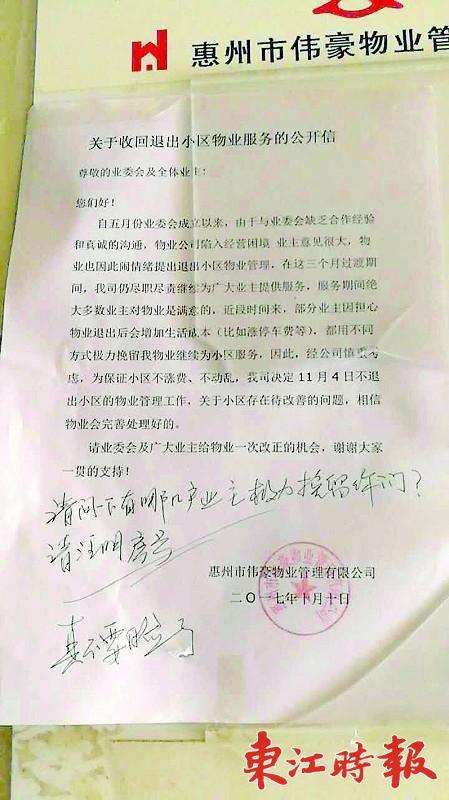 惠州市伟豪物业管
关于收回退出小区物业服务的公开信
尊敬的业委会及全体业主：
您们好！
自五月份业委会成立以来，由于与业委会缺乏合作经验
和真诚的沟通，物业公司陷入经营困境 业主意见很大，物
业也因此闹情绪提出退出小区物业管理，在这三个月过渡期
间，我司仍尽职尽责继续为广大业主提供服务，服务期间绝
大多数业主对物业是满意的，近段时间来，部分业主因担心
物业退出后会增加生活成本（比如涨停车费等），都用不同
方式极力挽留我物业继续为小区服务，因此，经公司慎重考
虑，为保证小区不涨费、不动乱，我司决定 11 月 4 日不退
出小区的物业管理工作，关于小区存在待改善的问题，相信
物业会完善处理好的。
请业委会及广大业主给物业一次改正的机会，谢谢大家
一贯的支持！
请问下有哪几户业主极力挽留你们？
请注明房号
惠州市伟豪物业管理有限公司
二〇一七年十月十日
真不要脸了
東江時報